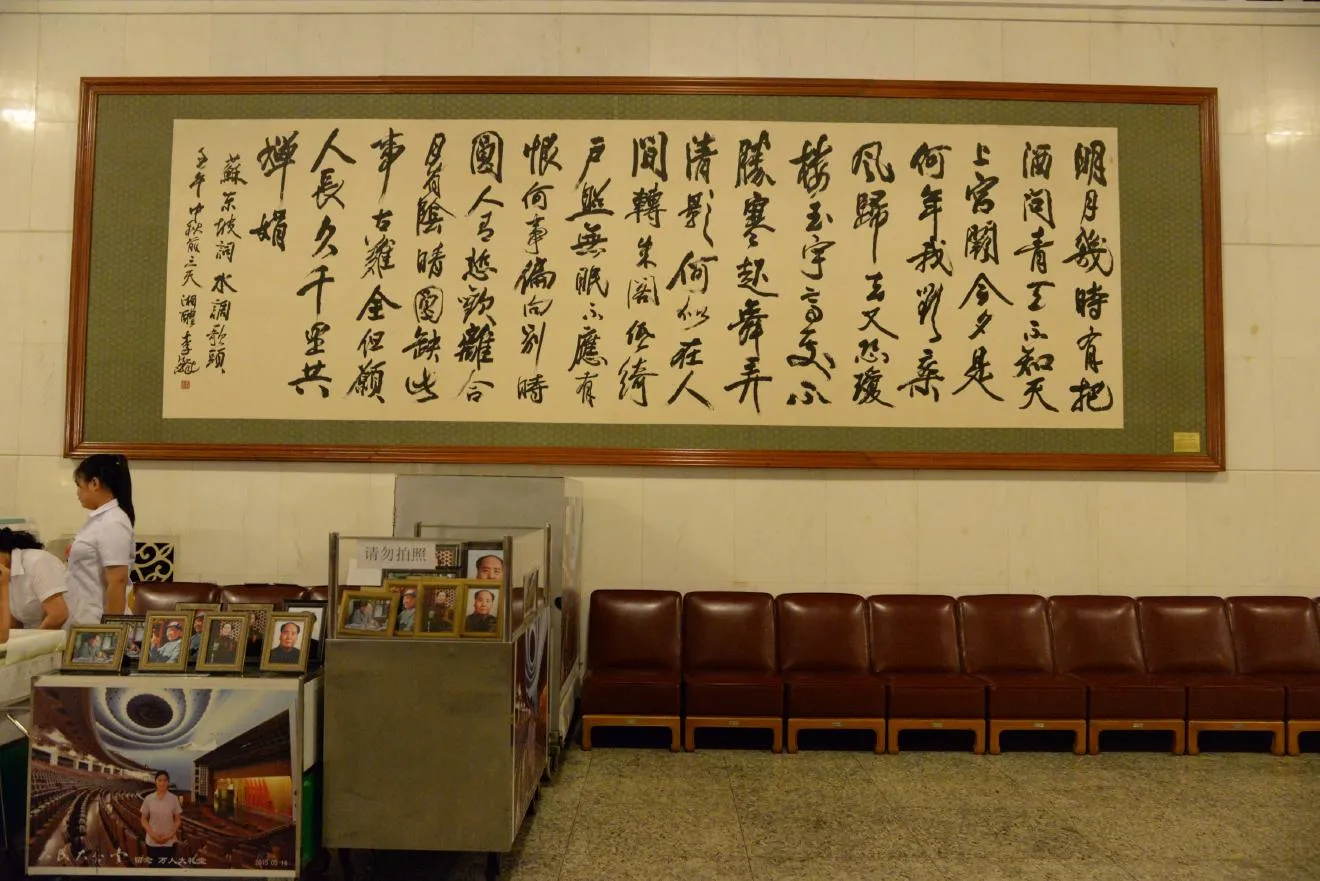 明月幾時有把
酒問青天不知天
上宮闕今夕是
何年我欲乘
風歸去又恐瓊
樓玉宇高處不
勝寒起舞弄
清影何似在人
間轉朱閣低綺
戶照無眠不應有
恨何事偏向別時
圓人有悲歡離合
月有陰晴圓缺此
事古難全但願
人長久千里共
嬋娟
蘇東坡詞水調歌頭
壬午中秋前三天湘醴李鐸
请勿拍照
人民大会堂 留念 万人大礼堂 2015 05 16